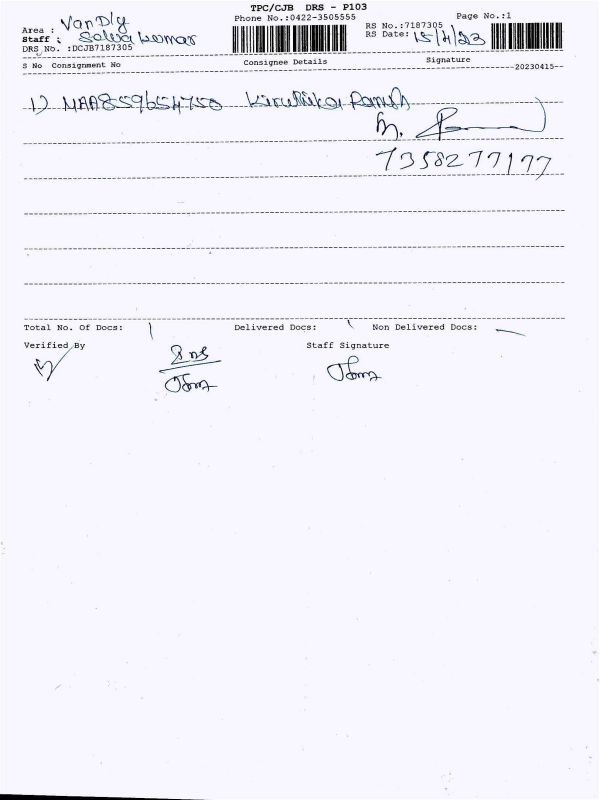 TPC/CJB DRS - P103
Phone No.:0422-3505555 Page No.:1
Area : Van Dly
RS No.:7187305
Staff : Selva kumar
RS Date: 15/4/23
DRS No. :DCJB7187305
S No Consignment No Consignee Details Signature
--20230415--
1) MAA859654750 Kiruthika Ramesh
7358277177
Total No. Of Docs: 1 Delivered Docs: 1 Non Delivered Docs: —
Verified By Staff Signature